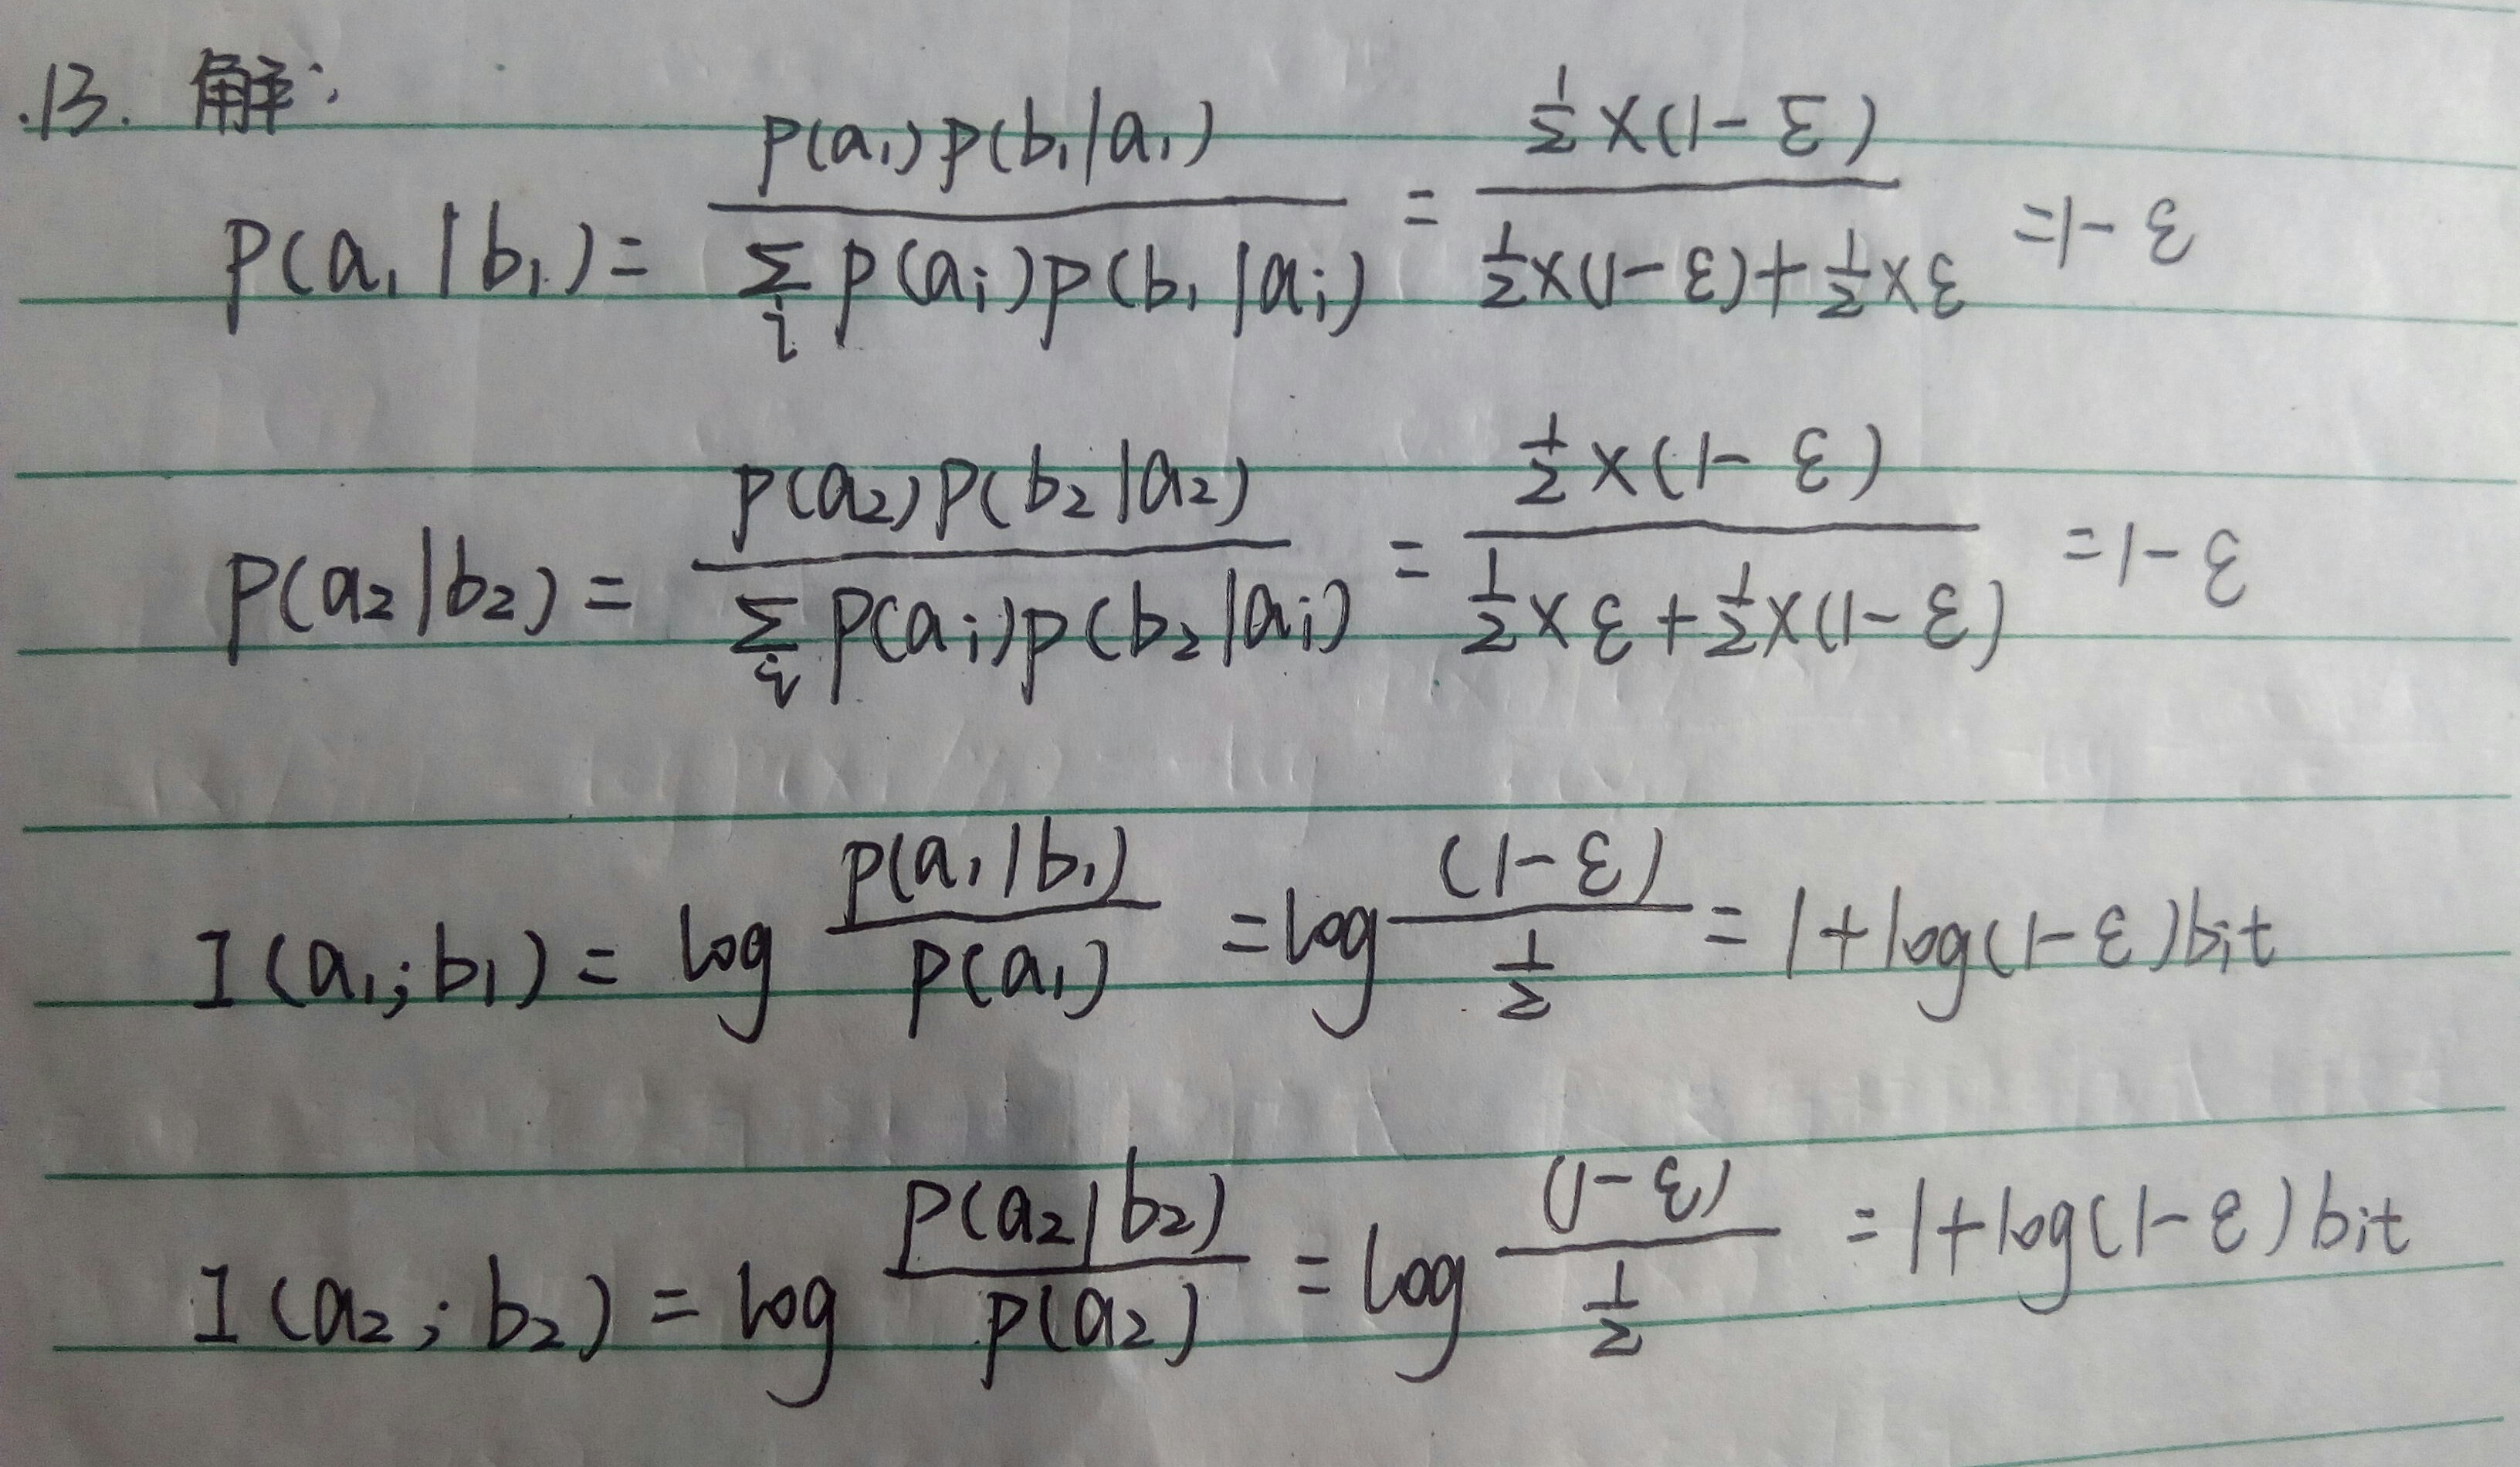 .13. 解:
p(a₁|b₁) = \frac{p(a₁)p(b₁|a₁)}{\sum_i p(a_i)p(b₁|a_i)} = \frac{\frac{1}{2}×(1-ε)}{\frac{1}{2}×(1-ε)+\frac{1}{2}×ε} = 1-ε
p(a₂|b₂) = \frac{p(a₂)p(b₂|a₂)}{\sum_i p(a_i)p(b₂|a_i)} = \frac{\frac{1}{2}×(1-ε)}{\frac{1}{2}×ε+\frac{1}{2}×(1-ε)} = 1-ε
I(a₁;b₁) = log \frac{p(a₁|b₁)}{p(a₁)} = log \frac{(1-ε)}{\frac{1}{2}} = 1+log(1-ε)bit
I(a₂;b₂) = log \frac{p(a₂|b₂)}{p(a₂)} = log \frac{(1-ε)}{\frac{1}{2}} = 1+log(1-ε)bit